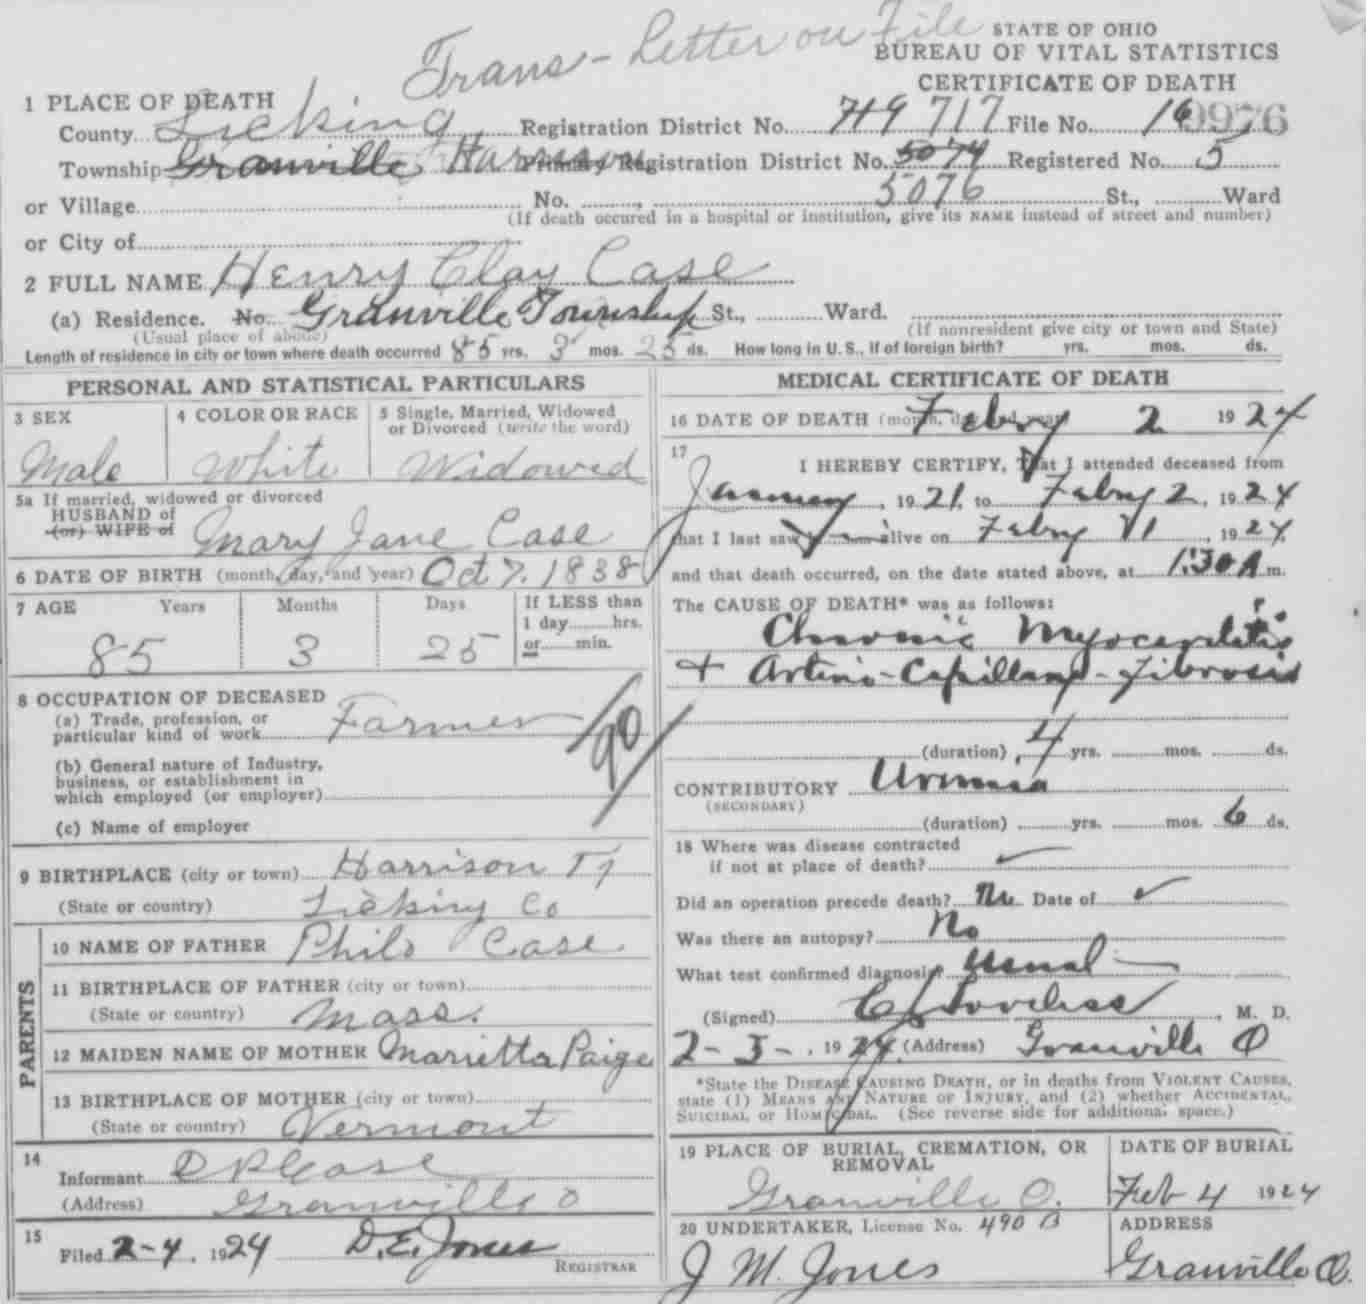 Trans - Letter on File
STATE OF OHIO
BUREAU OF VITAL STATISTICS
CERTIFICATE OF DEATH
1 PLACE OF DEATH
County Licking Registration District No. 719 717 File No. 16 9976
Township Granville Harrison Primary Registration District No. 5074 Registered No. 5
or Village No. , 5076 St., Ward
(If death occured in a hospital or institution, give its NAME instead of street and number)
or City of
2 FULL NAME Henry Clay Case
(a) Residence. No. Granville Township St., Ward.
(Usual place of abode) (If nonresident give city or town and State)
Length of residence in city or town where death occurred 85 yrs. 3 mos. 25 ds. How long in U. S., if of foreign birth? yrs. mos. ds.
PERSONAL AND STATISTICAL PARTICULARS
3 SEX 4 COLOR OR RACE 5 Single, Married, Widowed
or Divorced (write the word)
Male White Widowed
5a If married, widowed or divorced
HUSBAND of
(or) WIFE of Mary Jane Case
6 DATE OF BIRTH (month, day, and year) Oct 7. 1838
7 AGE Years Months Days If LESS than
1 day hrs.
85 3 25 or min.
8 OCCUPATION OF DECEASED
(a) Trade, profession, or
particular kind of work Farmer 90
(b) General nature of Industry,
business, or establishment in
which employed (or employer)
(c) Name of employer
9 BIRTHPLACE (city or town) Harrison Tp
(State or country) Licking Co
PARENTS
10 NAME OF FATHER Philo Case
11 BIRTHPLACE OF FATHER (city or town)
(State or country) Mass.
12 MAIDEN NAME OF MOTHER Marietta Paige
13 BIRTHPLACE OF MOTHER (city or town)
(State or country) Vermont
14
Informant Case
(Address) Granville O
15
Filed 2-4, 1924 D.E. Jones
REGISTRAR
MEDICAL CERTIFICATE OF DEATH
16 DATE OF DEATH (month, day and year) Febry 2 1924
17
I HEREBY CERTIFY, That I attended deceased from
January, 1921, to Febry 2, 1924
that I last saw h alive on Febry 1, 1924
and that death occurred, on the date stated above, at 1:30 A m.
The CAUSE OF DEATH* was as follows:
Chronic Myocarditis
+ Arterio-Capillary-Fibrosis
(duration) 4 yrs. mos. ds.
CONTRIBUTORY Uremia
(SECONDARY)
(duration) yrs. mos. 6 ds.
18 Where was disease contracted
if not at place of death?
Did an operation precede death? No Date of
Was there an autopsy? No
What test confirmed diagnosis? Usual
(Signed) Loveless, M. D.
2-3-, 1924. (Address) Granville O
*State the DISEASE CAUSING DEATH, or in deaths from VIOLENT CAUSES,
state (1) MEANS AND NATURE OF INJURY, and (2) whether ACCIDENTAL,
SUICIDAL, or HOMICIDAL. (See reverse side for additional space.)
19 PLACE OF BURIAL, CREMATION, OR
REMOVAL
Granville O.
DATE OF BURIAL
Feb 4 1924
20 UNDERTAKER, License No. 490 B
J M. Jones
ADDRESS
Granville O.